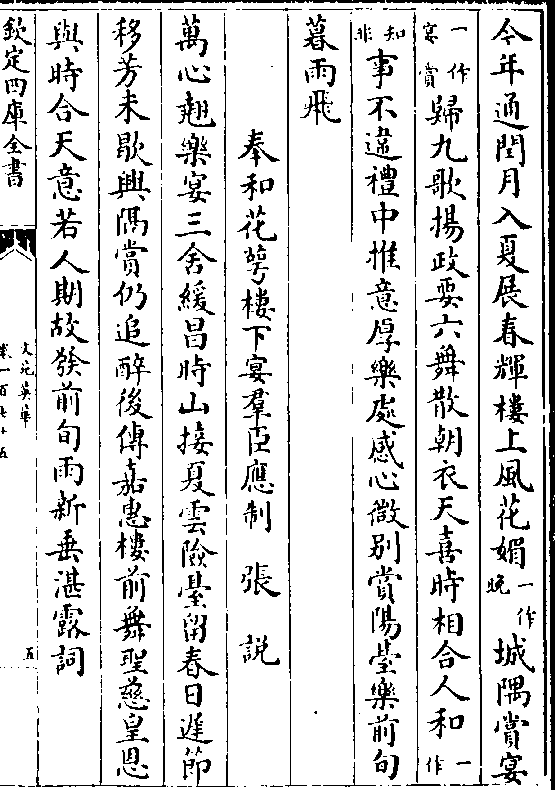 今年通閏月入夏展春輝樓上風花媚一作晚城隅賞宴
一作宴賞歸九歌揚政要六舞散朝衣天喜時相合人和一作
知非事不違禮中推意厚樂處感心微别賞陽臺樂前旬
暮雨飛
奉和花萼樓下宴羣臣應制 張説
萬心翹樂宴三舍緩昌時山接夏雲險臺留春日遲節
移芳未歇興隅賞仍追醉後傳嘉惠樓前舞聖慈皇恩
與時合天意若人期故發前旬雨新垂湛露詞
欽定四庫全書
文苑英華
卷一百七十五
五